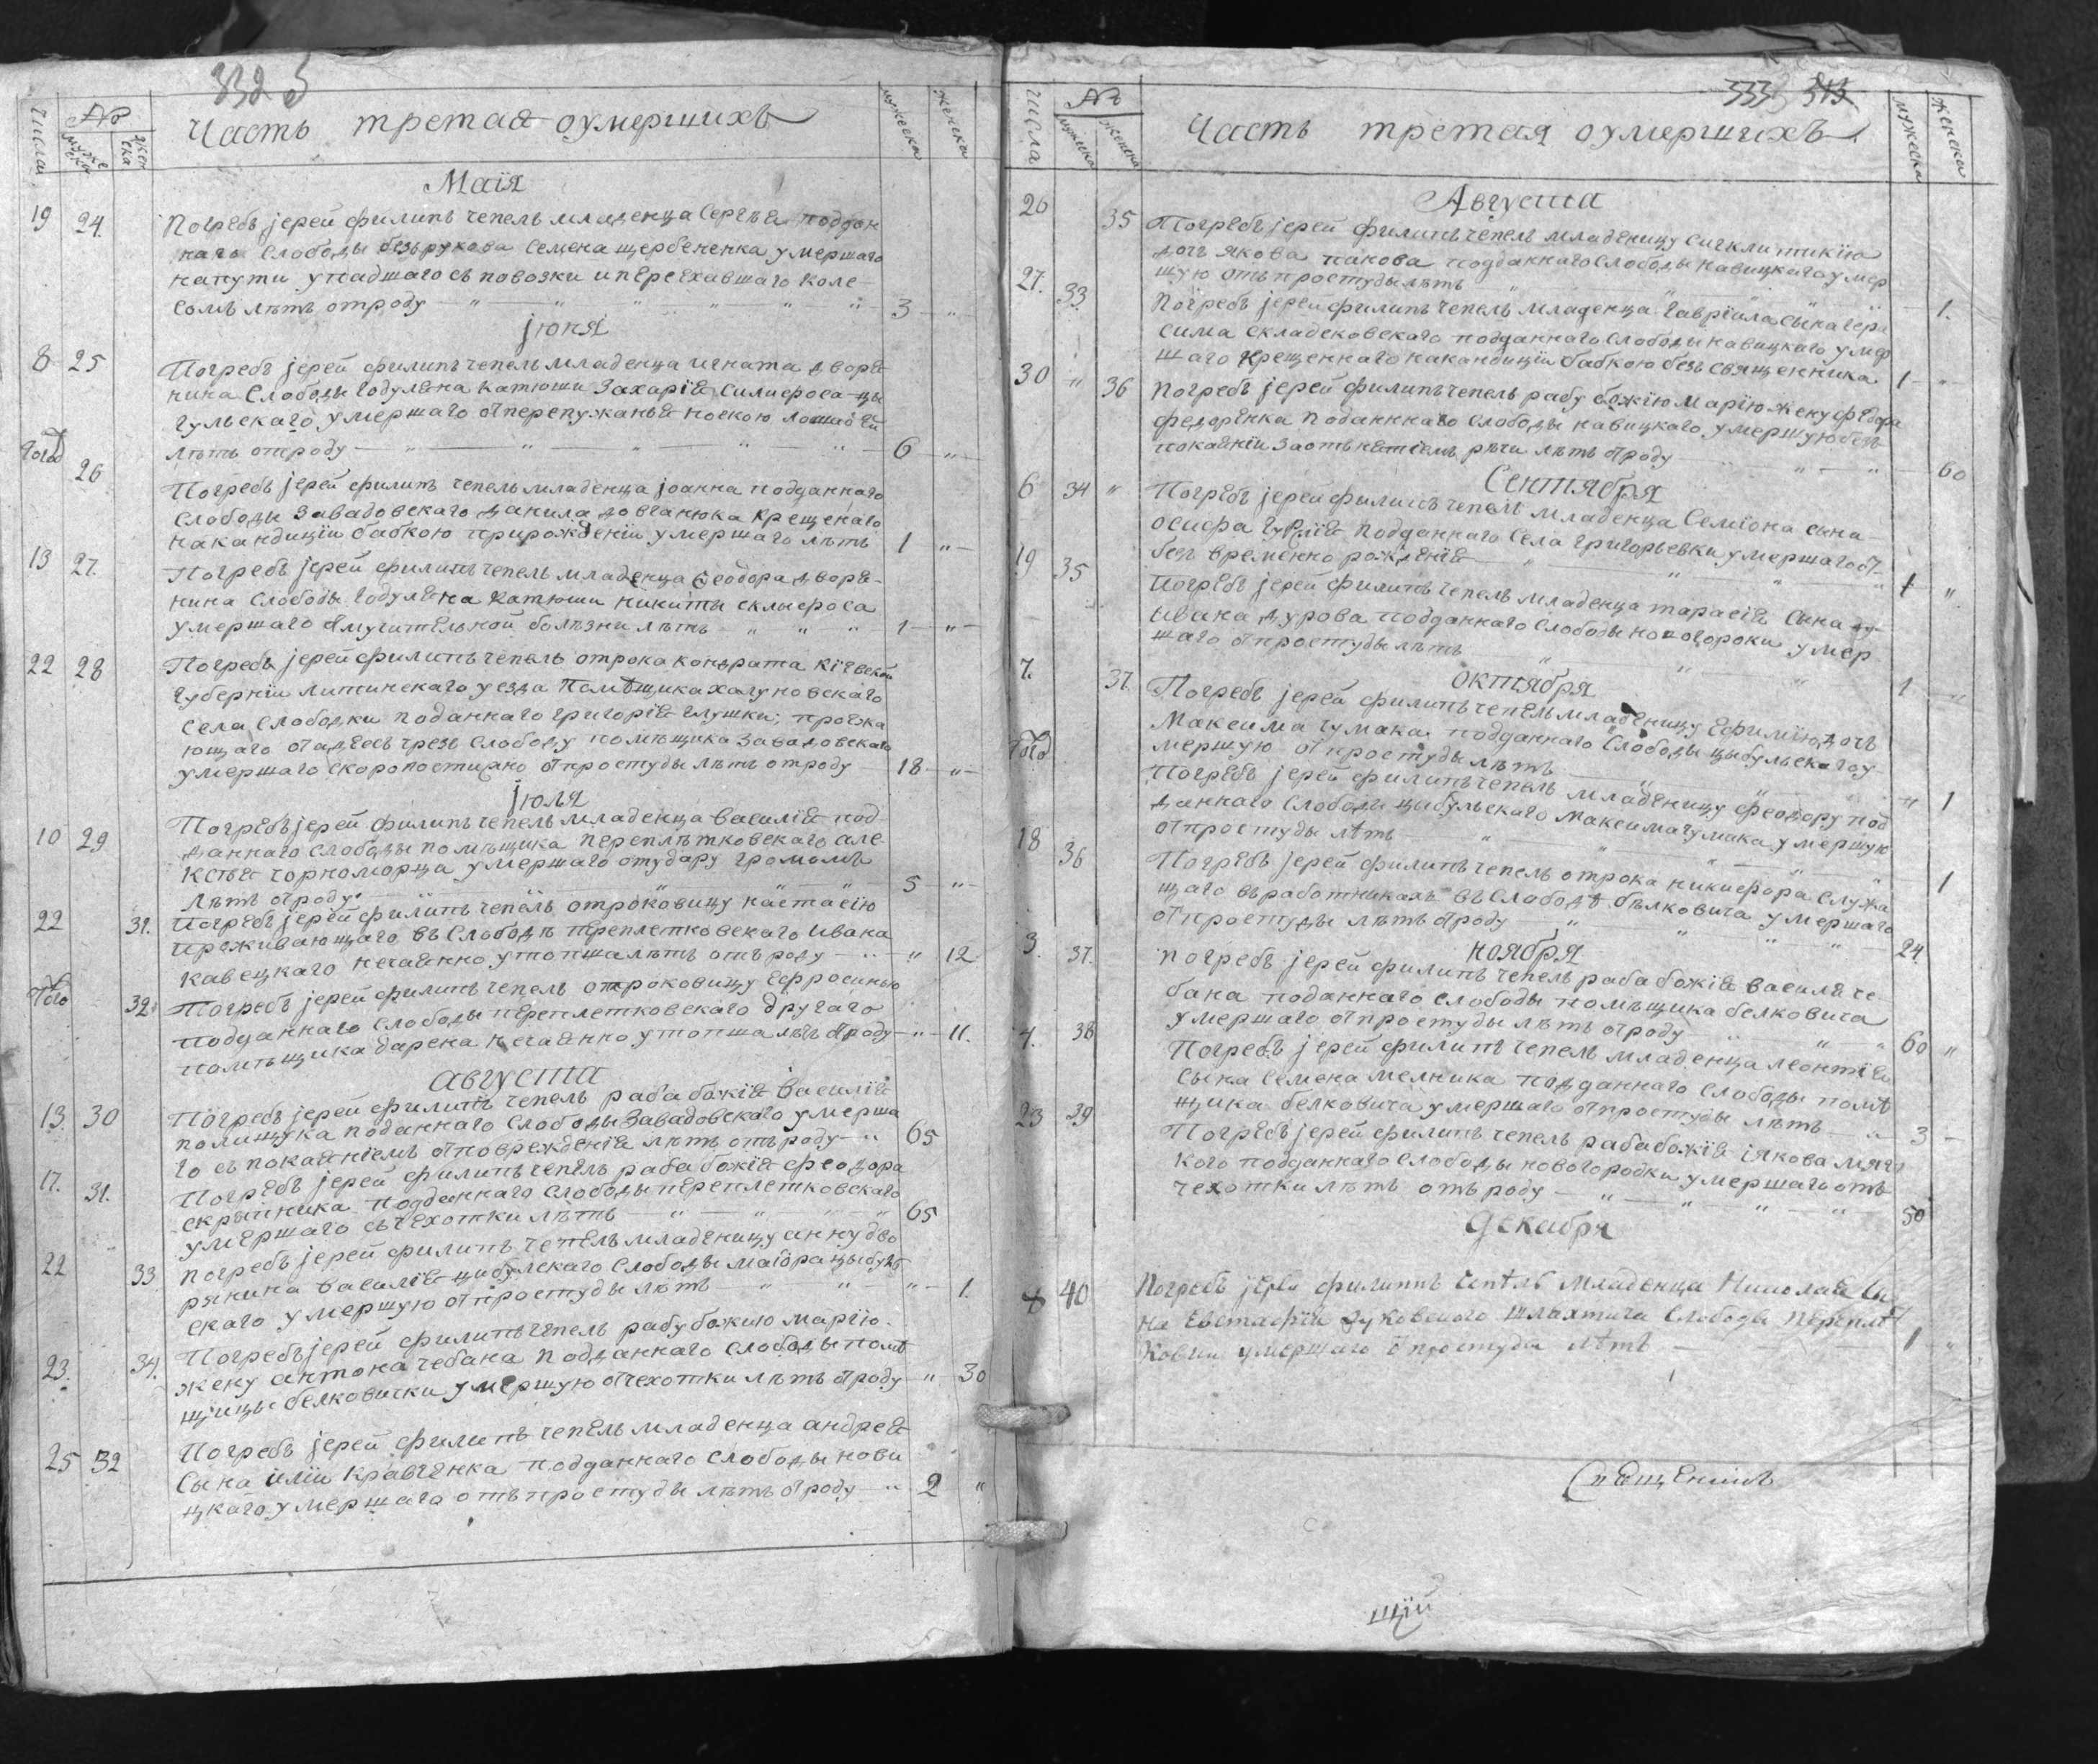 332
Числа № мужеска женска
Часть третая оумершихъ
мужеска женска
Маїя
19 24. Погребъ јерей филипъ чепель младенца Сергѣя поддан
наго Слободы безърукова Семена щербененка умершаго
напути упадшаго съ повозки иперееехавшаго коле
сомъ лѣтъ отроду 3
јюня
8 25 Погребъ јерей филипъ чепель младенца игната дворя
нина Слободы Годуляна Катюши Захарїя Силифоса цы
гульскаго умершаго отперепужанья носкою лошадей
лѣтъ отроду 6
Того 26 Погребъ јерей филипъ чепель младенца јоанна подданнаго
Слободы Завадовскаго данила довганюка крещенаго
накандицїи бабкою прирожденїи умершаго лѣтъ 1
13 27. Погребъ јерей филипъ чепель младенца Феодора дворя
нина Слободы Годуляна Катюши никиты склифоса
умершаго отмучительной болѣзни лѣтъ 1
22 28 Погребъ јерей филипъ чепель отрока кондрата кїевской
губернїи литинскаго уезда Помѣщика халуновскаго
Села Слободки поданнаго григорїя глушки, проезжа
ющаго отадесъ чрезъ Слободу помѣщика Завадовскаго
умершаго скоропостижно отпростуды лѣтъ отроду 18
јюля
10 29 Погребъ јерей филипъ чепель младенца василїя под
даннаго слободы помѣщика переплѣтковскаго але
ксѣя чорноморца умершаго отудару громомъ
лѣтъ отроду 5
22 31. Погребъ јерей филипъ чепель отроковицу настасїю
проживающаго въ Слободѣ переплетковскаго ивана
кавецкаго нечаянно утопша лѣтъ отъ роду 12
Того 32. Погребъ јерей филипъ чепель отроковицу Ефросинью
подданнаго слободы переплетковскаго другаго
помѣщика дарена нечаянно утопша лѣтъ отроду 11.
августа
13. 30 Погребъ јерей филипъ чепель раба божїя василїя
полищука поданнаго слободы Завадовскаго умерша
го съ покаянїемъ отповрежденїя лѣтъ отъ роду 65
17. 31. Погребъ јерей филипъ чепель раба божїя феодора
скрыпника подданнаго слободы переплетковскаго
умершаго съчехотки лѣтъ 65
22 33 Погребъ јерей филипъ чепель младеницу анну дво
рянина василїя цибулскаго слободы маїора цыбуль
скаго умершую отпростуды лѣтъ 1.
23. 34. Погребъ јерей филипъ чепель рабу божию марїю
жену антона чебана подданнаго слободы помѣ
щицы белковички умершую отчехотки лѣтъ отроду 30
25 32 Погребъ јерей филипъ чепель младенца андрея
Сына илїи кравченка подданнаго слободы нови
цкаго умершаго отъпростуды лѣтъ отроду 2
333
Числа № мужеска женска
Часть третая оумершихъ
мужеска женска
Августа
26 35 Погребъ јерей филипъ чепель младеницу сигклитикїю
дочъ якова панова подданнаго слободы навицкаго умер
шую отъпростуды лѣтъ 1.
27. 33. Погребъ јерей филипъ чепель младенца Гаврїила сына гера
сима складековскаго подданнаго слободы навицкаго умер
шаго крещеннаго накандицїи бабкою безъ священника 1
30 36 Погребъ јерей филипъ чепель рабу божїю марїю жену федора
федоренка поданннаго слободы навицкаго умершую безъ
покаянїи заотънятїемъ рѣчи лѣтъ отроду 60
Сентября
6 34 Погребъ јерей филипъ чепель младенца Семїона сына
осифа подданнаго Села григорьевки умершаго от
безъ временно рожденїя 1
19 35 Погребъ јерей филипъ чепель младенца тарасїя сына
ивана дурова подданнаго слободы новогороки умер
шаго отпростуды лѣтъ 1
октября
7. 37. Погребъ јерей филипъ чепель младеницу Ефимїю дочъ
Максима чумака подданнаго слободы цыбульскаго у
мершую отпростуды лѣтъ 1
Того Погребъ јерей филипъ чепель младеницу феодору под
даннаго слободы цыбульскаго максима чумака умершую
отпростуды лѣтъ 1
18 36 Погребъ јерей филипъ чепель отрока никифора служа
щаго въработникахъ въ слободѣ бѣлковича умершаго
отпростуды лѣтъ отроду 24.
ноября
3. 37. Погребъ јерей филипъ чепель раба божїя василя че
бана поданнаго слободы помѣщика белковича
умершаго отпростуды лѣтъ отроду 60
4. 38 Погребъ јерей филипъ чепель младенца леонтїя
сына семена мелника подданнаго слободы помѣ
щика белковича умершаго отпростуды лѣтъ 3
23 39 Погребъ јерей филипъ чепель раба божїя їякова мяг
кого подданнаго слободы новогородки умершаго отъ
чехотки лѣтъ отъ роду 50
декабря
8 40 Погребъ јерей филиппъ чепѣль младенца Николая сы
на Евстафїя Зуковского шляхтича слободы переплѣт
ковки умершаго отпростуды лѣтъ 1
Священникъ
щїй